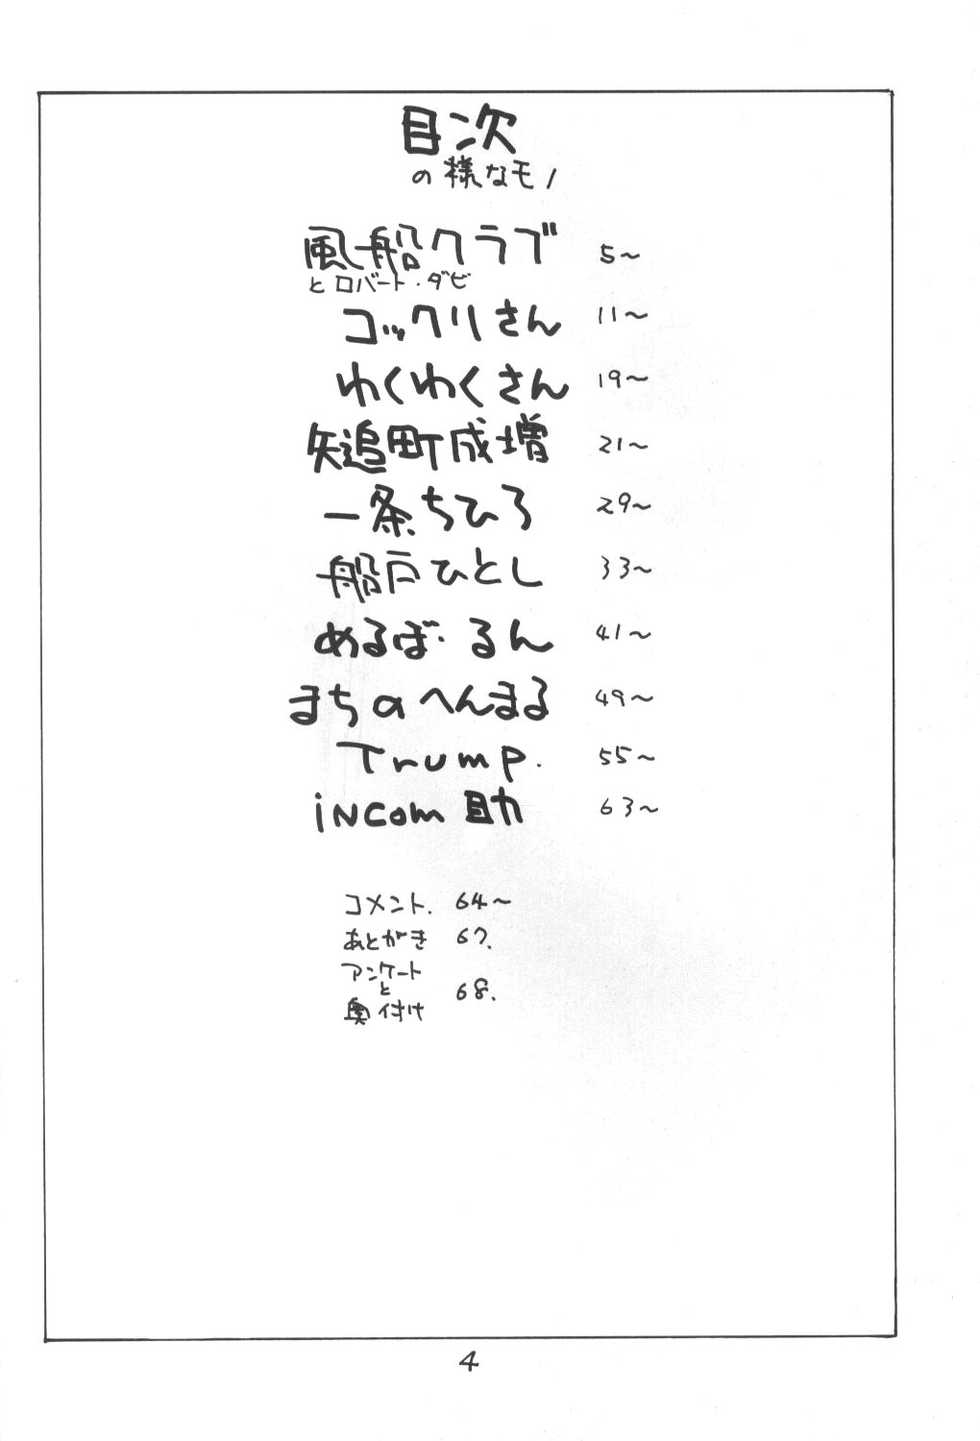 目次
の様なモノ
風船クラブ 5〜
とロバート・ダビ
コックリさん 11〜
わくわくさん 19〜
矢追町成増 21〜
一条ちひろ 29〜
船戸ひとし 33〜
めるばるん 41〜
まちのへんまる 49〜
Trump. 55〜
iNCom助 63〜
コメント. 64〜
あとがき 67.
アンケート
と 68.
奥付け
4